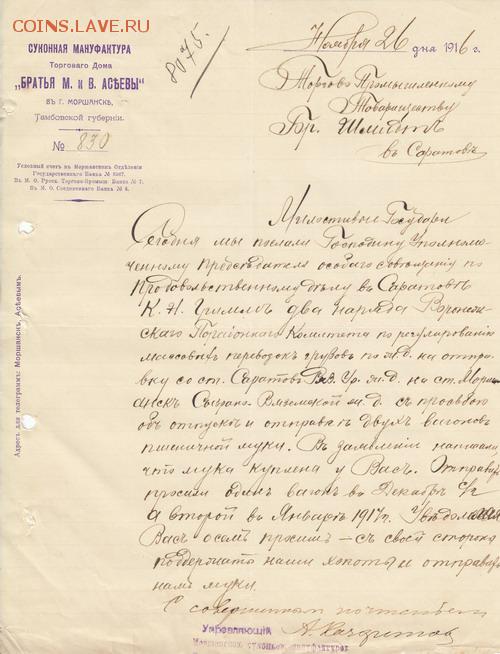 COINS.LAVE.RU
СУКОННАЯ МАНУФАКТУРА
Торговаго Дома
„БРАТЬЯ М. и В. АСѢЕВЫ“
ВЪ Г. МОРШАНСКѢ,
Тамбовской губерніи.
№ 830
8075.
Условный счетъ въ Моршанскомъ Отдѣленіи
Государственнаго Банка №
Въ М. О. Русск. Торгово-Промыш. Банка № 7.
Въ М. О. Соединеннаго Банка № 6.
Адресъ для телеграммъ: Моршанскъ, Асѣевымъ.
Ноября 26 дня 1916 г.
Торгово Промышленному
Товариществу
Бр. Шмидтъ
въ Саратовѣ
Милостивые Государи
Сегодня мы послали Господину Уполномо-
ченному Предсѣдателя особаго совѣщанія по
Продовольственному дѣлу въ Саратовѣ
К. Н. Гримму два наряда Воронеж-
скаго Порайоннаго Комитета по регулированію
массовыхъ перевозокъ грузовъ по ж.д. на отпра-
вку со ст. Саратовъ Ряз. Ур. ж.д. на ст.Морш-
анскъ Сызрано Вяземской ж.д. съ просьбою
объ отпускѣ и отправкѣ двухъ вагоновъ
пшеничной муки. Въ заявленіи написали,
что мука куплена у Васъ. Отправить
просили одинъ вагонъ въ Декабрѣ с/г
а второй въ Январѣ 1917 г. Увѣдомляя
Васъ о семъ просимъ – съ своей стороны
поддержать наши хлопоты и отправить
намъ муки.
Съ совершеннымъ почтеніемъ
Управляющій А.
Моршанской суконной мануфактурой